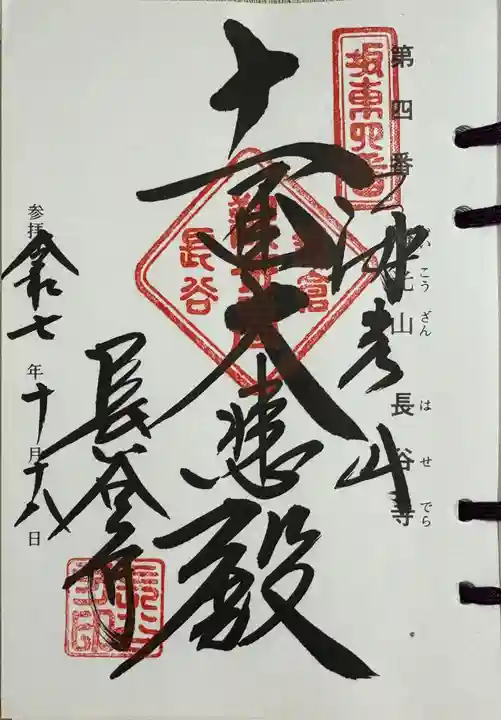 第四番 海光山 長谷寺
いこうざん はせでら
坂東四番
海光山
十一面大悲殿
鎌倉
長谷
長谷寺
参拝 令和七年十月十八日